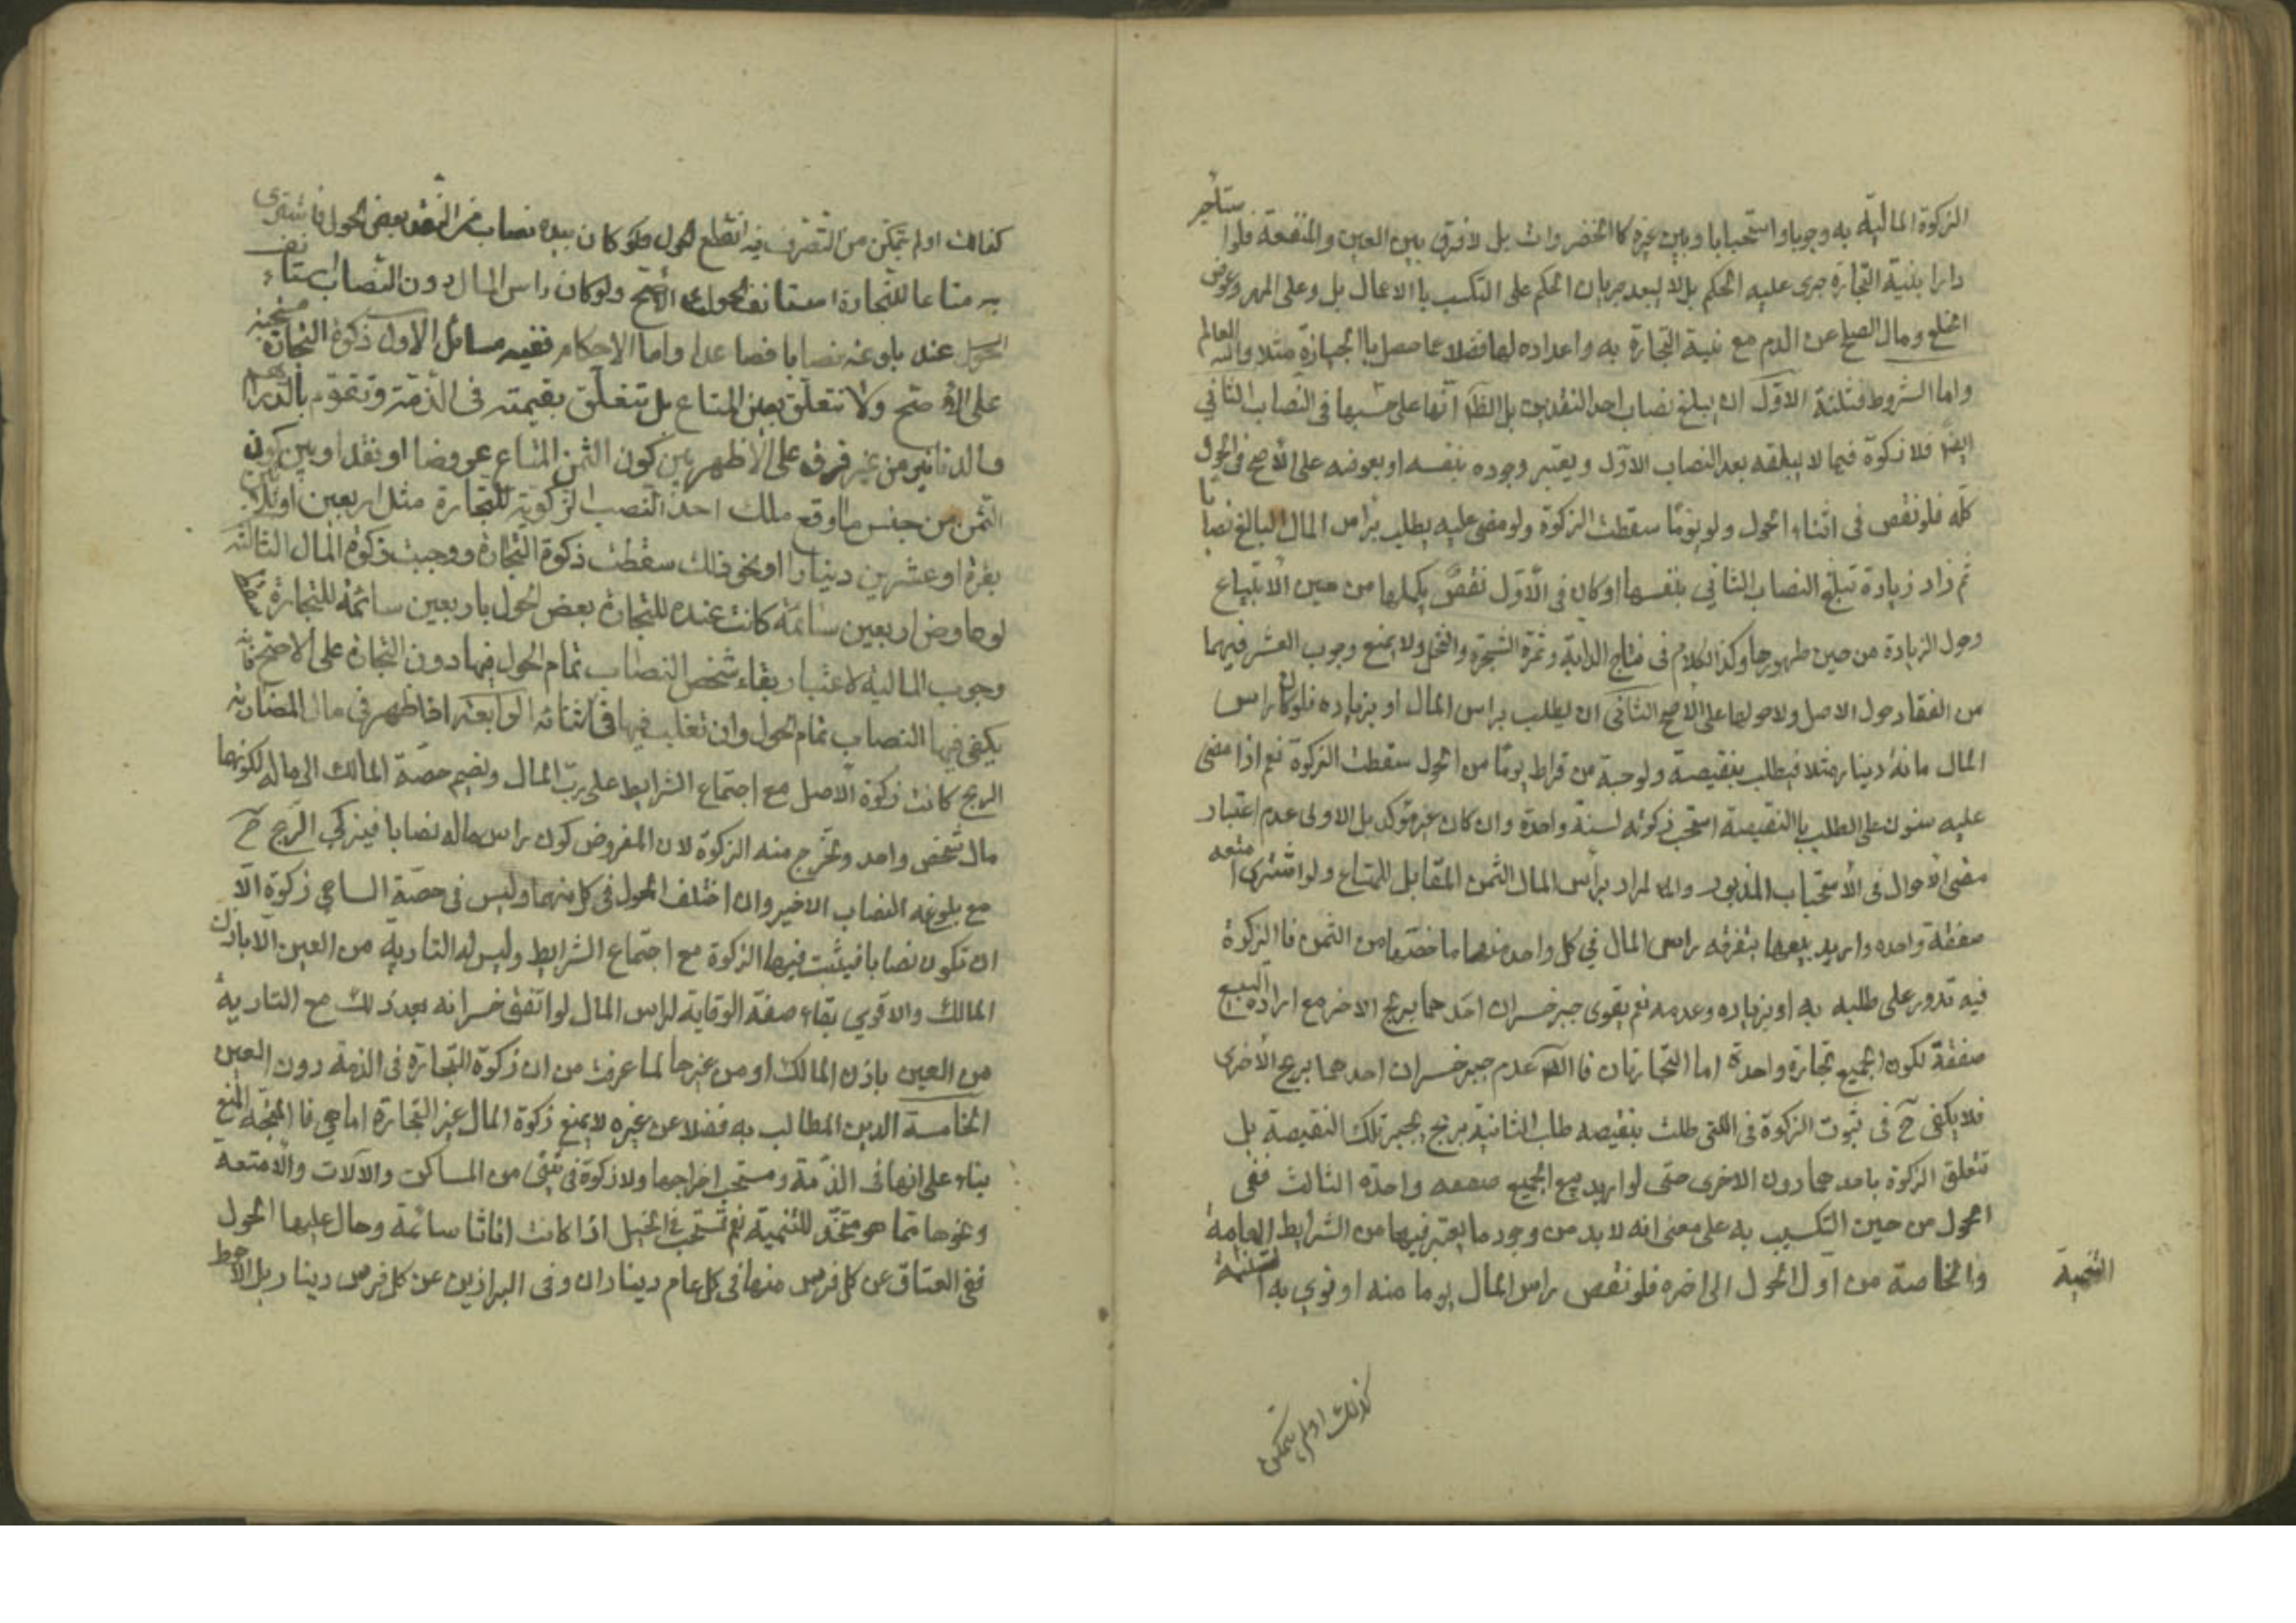 الزكوة المالية به وجوبا واستحبابا وبين غيره كالخضروات بل لا فرق بين العين والمنفعة فلو استأجر
دارا بنية التجارة جرى عليه الحكم بل لا يبعد جريان الحكم على التكسب با الاعمال بل وعلى المهر وعوض
الخلع ومال الصلح عن الدم مع نية التجارة به واعداده لها فضلا عما حصل با الحيازة مثلا والله العالم
واما الشروط فثلثة الاول ان يبلغ نصاب احد النقدين بل الظ انها على حسبها في النصاب الثاني
ايضا فلا زكوة فيما لا يبلغه بعد النصاب الاول ويعتبر وجوده بنفسه او بعوضه على الأصح في الحول
كله فلو نقص في اثناء الحول ولو يوما سقطت الزكوة ولو مضى عليه يطلب برأس المال البالغ نصابا
ثم زاد زيادة تبلغ النصاب الثاني بنفسها او كان في الأول نقص يكملها من حين الابتياع
وحول الزيادة من حين ظهورها وكذا الكلام في نتاج الدابة وثمرة الشجرة والنخل ولا يمنع وجوب العشر فيهما
من انعقاد حول الاصل ولا حولها على الأصح الثاني ان يطلب براس المال او بزياده فلو كان راس
المال مائة دينار مثلا فيطلب بنقيصة ولو حبة من قراط يوما من الحول سقطت الزكوة نعم اذا مضى
عليه سنون على الطلب با النقيصة استحب زكوته لسنة واحدة وان كان غير مؤكد بل الاولى عدم اعتبار
مضى الأحوال في الأستحباب المذبور والمراد برأس المال الثمن المقابل للمتاع ولو اشترى امتعه
صفقة واحده واريد بيعها بتفرقه راس المال في كل واحد منها ما خصها من الثمن فا الزكوة
فيه تدور على طلبه به او بزياده وعدمه نعم يقوى جبر خسران احدهما بربح الاخر مع ارادة البيع
صفقة لكون الجميع تجارة واحدة اما التجارتان فا الظ عدم جبر خسران احدهما بربح الأخرى
فلا يكفى ح في ثبوت الزكوة في اللتى طلت بنقيصه طلب الثانية بربح يجبر تلك النقيصة بل
تتعلق الزكوة باحدهما دون الاخرى حتى لو اريد بيع الجميع صفقه واحدة الثالث مضى
الحول من حين التكسب به على معنى انه لا بد من وجود ما يعتبر فيها من الشرايط العامة
والخاصة من اول الحول الى اخره فلو نقص راس المال يوما منه او نوى به القنية
كذلك اولم يتمكن
كذلك اولم يتمكن من التصرف فيه انقطع الحول فلو كان بيده نصاب من النقد بعض الحول فاشترى
به متاعا للتجارة استانف الحول على الأصح ولو كان راس المال دون النصاب استانف
الحول عند بلوغه نصابا فصاعدا واما الاحكام ففيه مسائل الاول زكوة التجارة مستحبة
على الأصح ولا تتعلق بعين المتاع بل تتعلق بقيمته في الذمة وتقوم بالدراهم
والدنانير من غير فرق على الأظهر بين كون الثمن المتاع عروضا او نقدا وبين كون
الثمن من جنس ما وقع ملك احد النصب الزكوية للتجارة مثل اربعين او ثلثين
بقرة او عشرين دينارا او نحو ذلك سقطت زكوة التجارة ووجبت زكوة المال الثالثة
لو عاوض اربعين سائمة كانت عنده للتجارة بعض الحول باربعين سائمة للتجارة سقط
وجوب المالية لاعتبار بقاء شخص النصاب تمام الحول فيها دون التجارة على الاصح فانه
يكفى فيها النصاب تمام الحول وان تغلب فيها في اثنائه الرابعة اذا ظهر في مال المضاربة
الربح كانت زكوة الأصل مع اجتماع الشرايط على رب المال ويضم حصة المالك الى ماله لكونها
مال شخص واحد وتخرج منه الزكوة لان المفروض كون راس ماله نصابا فيزكي الربح ح
مع بلوغه النصاب الاخير وان اختلف الحول في كل منهما وليس في حصة الساعي زكوة الا
ان تكون نصابا فيثبت فيها الزكوة مع اجتماع الشرايط وليس له التادية من العين الا باذن
المالك والاقوى بقاء صفة الوقاية لراس المال لو اتفق خسرانه بعد ذلك مع التادية
من العين باذن المالك او من غيرها لما عرفت من ان زكوة التجارة في الذمة دون العين
الخامسة الدين المطالب به فضلا عن غيره لا يمنع زكوة المال غير التجارة اما هي فا المتجه المنع
بناء على انها في الذمة ومستحب اخراجها ولا زكوة في شئ من المساكن والآلات والأمتعة
ونحوها مما هو متخذ للتنمية نعم تستحب في الخيل اذا كانت اناثا سائمة وحال عليها الحول
ففي العتاق عن كل فرس منها في كل عام ديناران وفي البراذين عن كل فرس دينار بل الأحوط